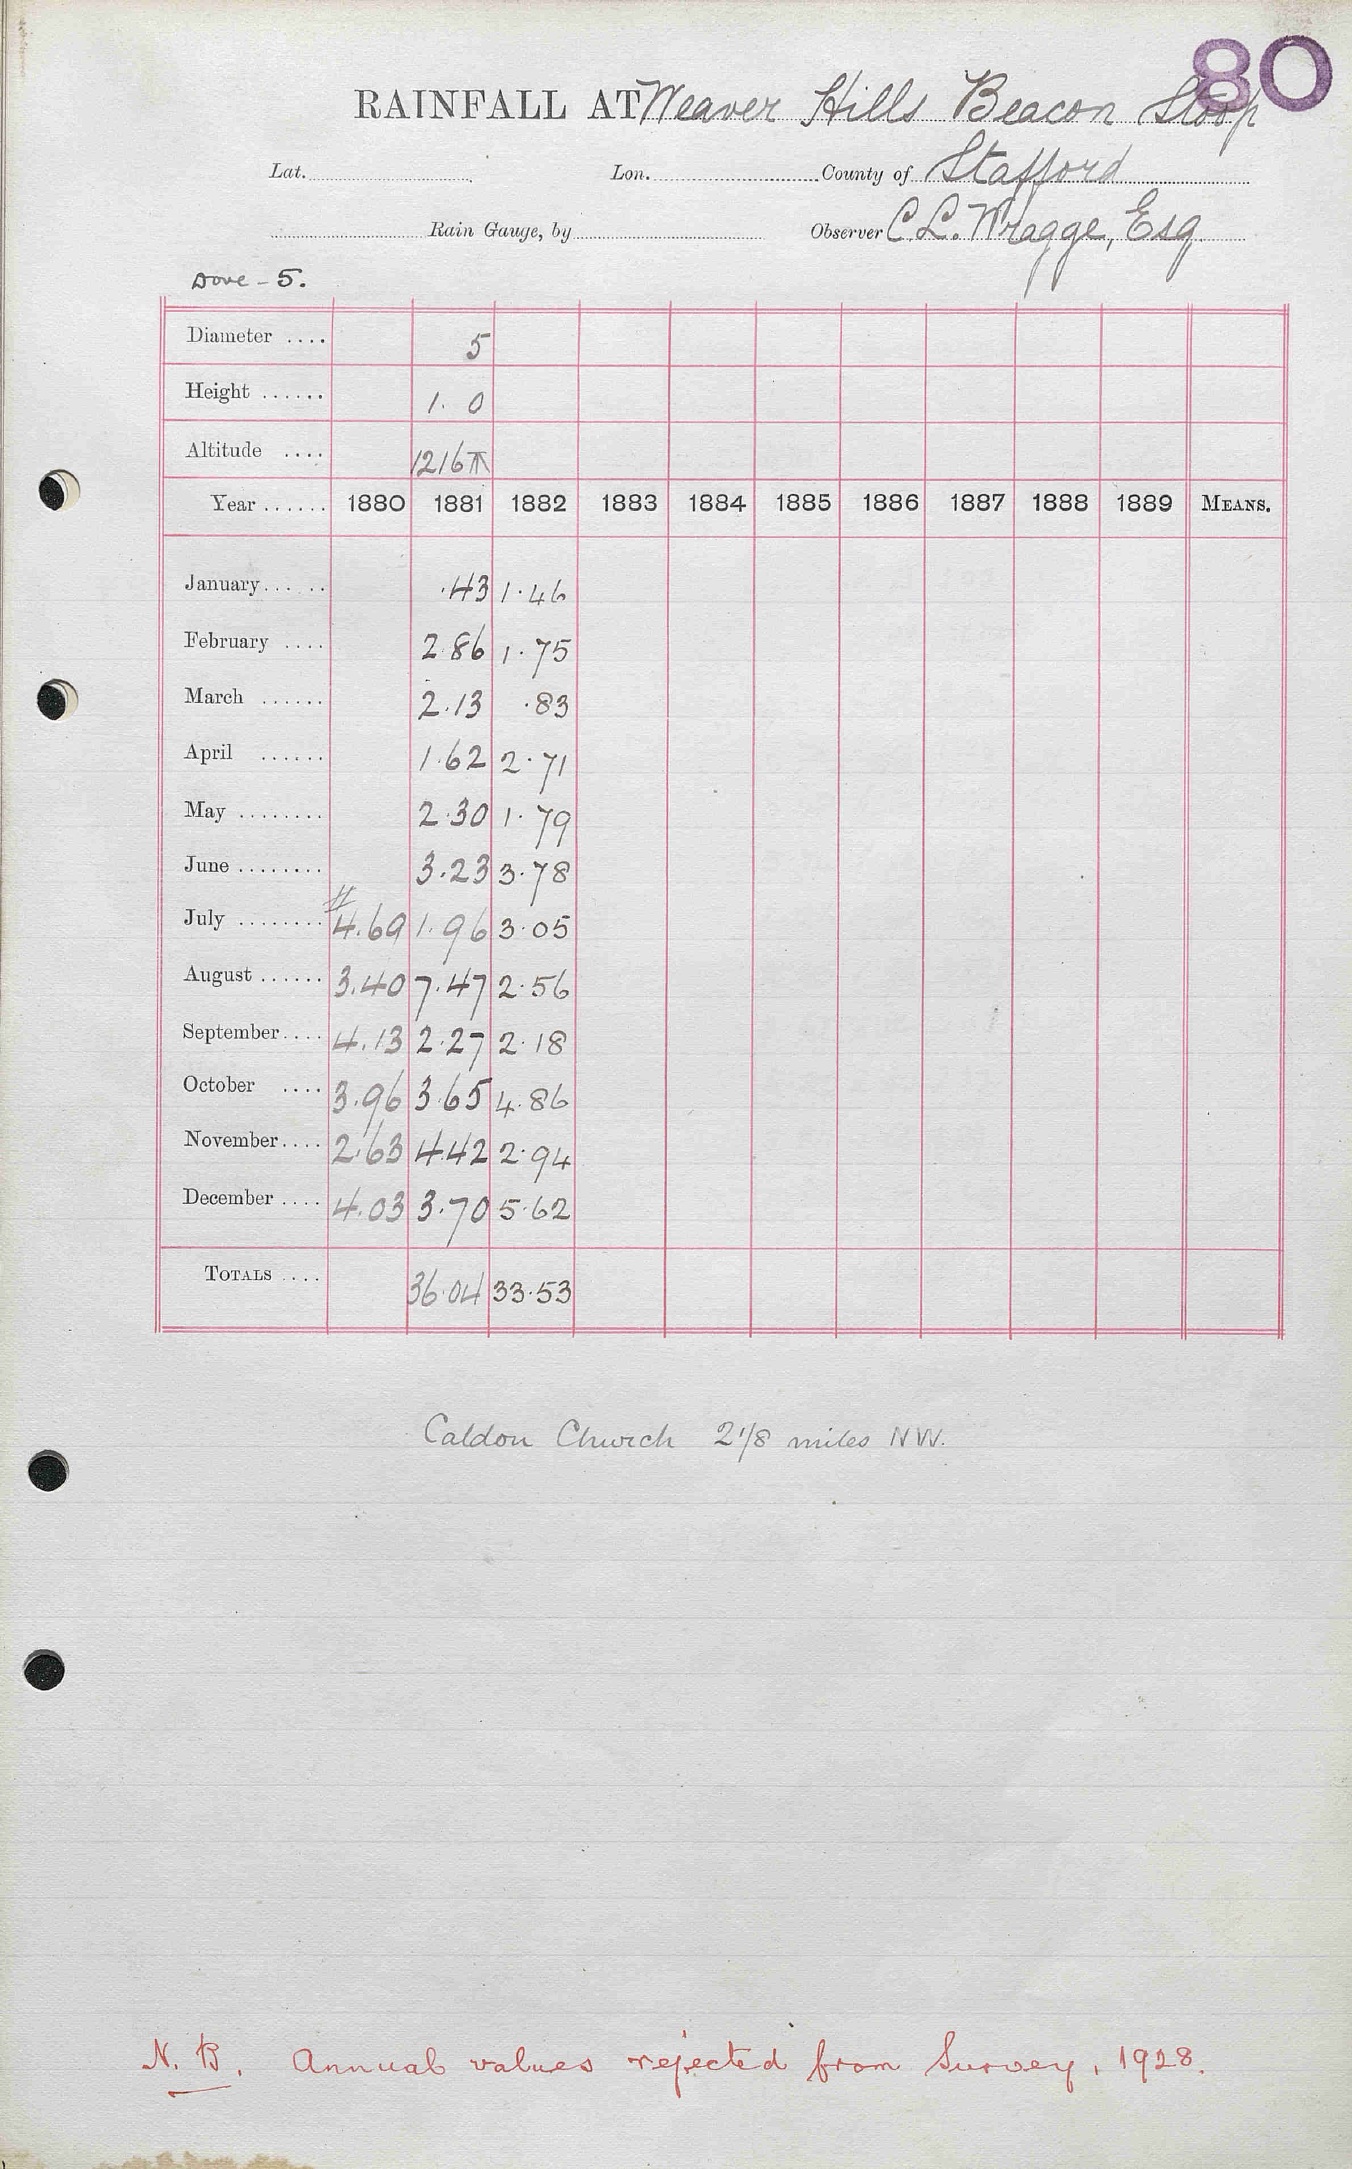 80
RAINFALL AT Weaver Hills Beacon Stoop
Lat. Lon. County of Stafford
Rain Gauge, by Observer C L. Wragge, Esq.
Dove - 5.
Diameter .... 5
Height ...... 1. 0
Altitude .... 1216
Year ...... 1880 1881 1882 1883 1884 1885 1886 1887 1888 1889 MEANS.
January...... .43 1.46
February .... 2.86 1.75
March ...... 2.13 .83
April ...... 1.62 2.71
May ........ 2.30 1.79
June ........ 3.23 3.78
July ........ # 4.69 1.96 3.05
August ...... 3.40 7.47 2.56
September.... 4.13 2.27 2.18
October .... 3.96 3.65 4.86
November.... 2.63 4.42 2.94
December .... 4.03 3.70 5.62
TOTALS .... 36.04 33.53
Caldon Church 2 1/8 miles NW.
N. B. Annual values rejected from Survey, 1928.